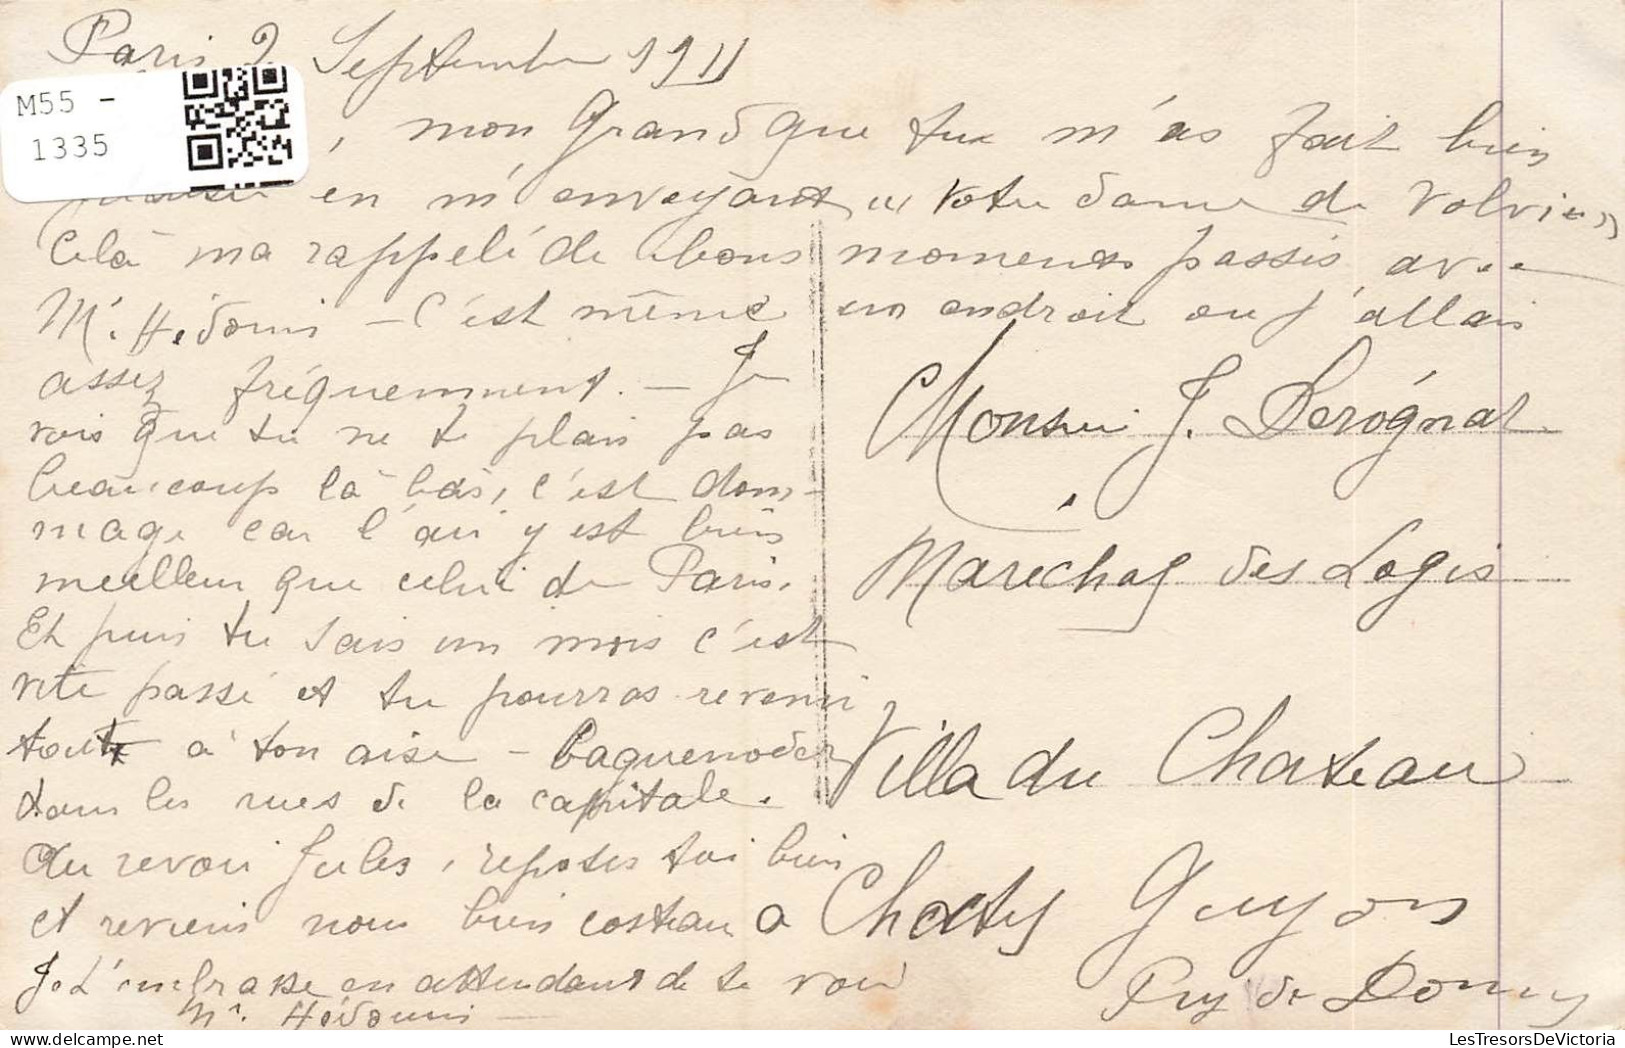 Paris 2 Septembre 1911
M55 -
1335
, mon Grand que tu m'as fait bien
en m'envoyant "Notre dame de Volvic"
Celà ma rappelé de bons moments passés avec
Mr. Hédouin - C'est même un endroit ou j'allais
assez fréquemment. - Je
vois que tu ne te plais pas
beaucoup là-bas, c'est dom-
mage car l'air y est bien
meilleur que celui de Paris.
Et puis tu sais un mois c'est
vite passé et tu pourras revenir
tout à ton aise - baguenoder
dans les rues de la capitale.
Au revoir Jules, reposes toi bien
et reviens nous bien costeau
Je t'embrasse en attendant de te voir
Mr. Hédouin
Monsieur J. Derognat
Maréchal des Logis
Villa du Chateau
à Chatel Guyon
Puy de Dome
LesTresorsDeVictoria